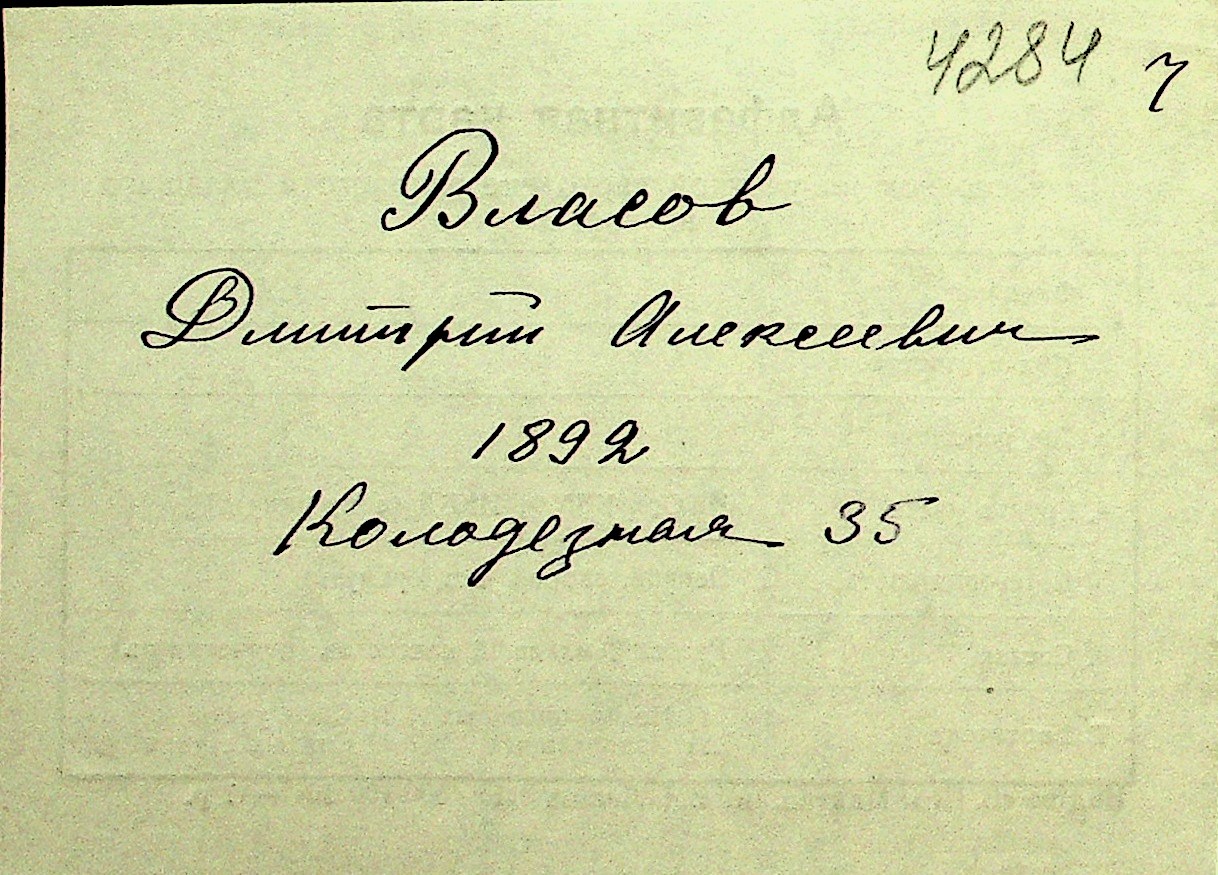 4284 ч
Власов
Дмитрий Алексеевич
1892
Колодезная 35